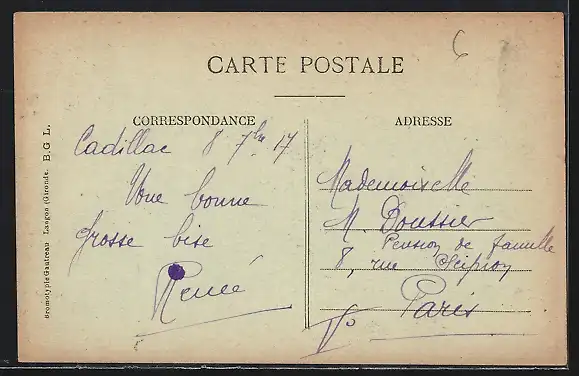 6
CARTE POSTALE
CORRESPONDANCE
Cadillac 8 7bre 17
Une bonne
grosse bise
Renée
ADRESSE
Mademoiselle
M. Doussier
Pension de famille
8, rue Scipion
Paris
Bromotypie Gautreau Langon (Gironde. B.G L.